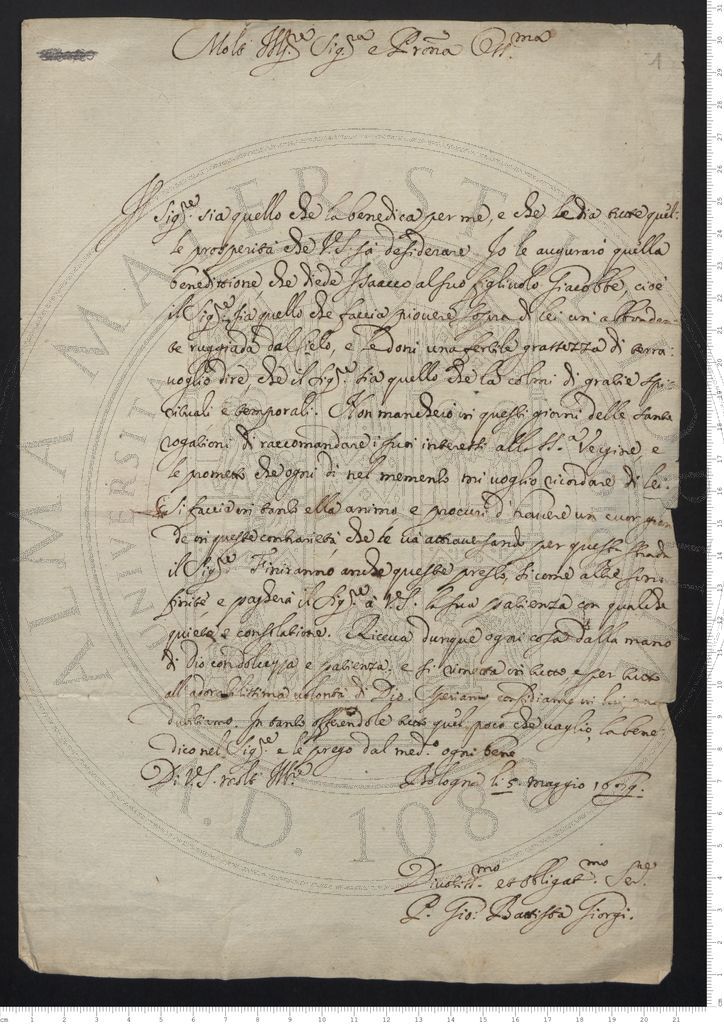 Molt' Ill.re Sig.ra e P.rona Oss.ma
1
Il Sig.re sia quello che la benedica per me, e che le dia tutte quel-
le prosperità che V.S. sà desiderare. Io le augurarò quella
benedittione che diede Isaacco al suo figlivolo Giacobbe, cioè
il Sig.re sia quello che faccia piovere sopra di lei un' abbondan-
te ruggiada dal Cielo, e le doni una fertile grassezza di terra:
voglio dire che il Sig.re sia quello che la colmi di gratie spi-
rituali e temporali. Non mancherò in questi giorni delle sante
rogationi di raccomandare i suoi interessi alla SS.a Vergine e
le prometto che ogni dì nel memento mi voglio ricordare di lei.
Si faccia in tanto ella animo, e procuri d' havere un cuor gran-
de in queste contrarietà, che le va attraversando per questa strada
il Sig.re Finiranno anche queste presto, si come altre
finite e pagherà il Sig.re à V.S. la sua patienza con qualche
quiete e consolatione. Riceva dunque ogni cosa dalla mano
di Dio con dolcezza e patienza, e si rimetta in tutto, e per tutto
all' adorabilissima volontà di Dio. Speriamo confidiamo in lui
dubitiamo. In tanto offerendole tutto quel poco che vaglio, la bene-
dico nel Sig.re e le prego dal med.o ogni bene
Di V.S. molt' Ill.re Bologna li 5. maggio 16
Divotiss.mo et obligat.mo Ser.re
P. Gio: Battista Giorgi.
ALMA MATER STUDIORUM
UNIVERSITÀ
A.D. 1088
cm 1 2 3 4 5 6 7 8 9 10 11 12 13 14 15 16 17 18 19 20 21